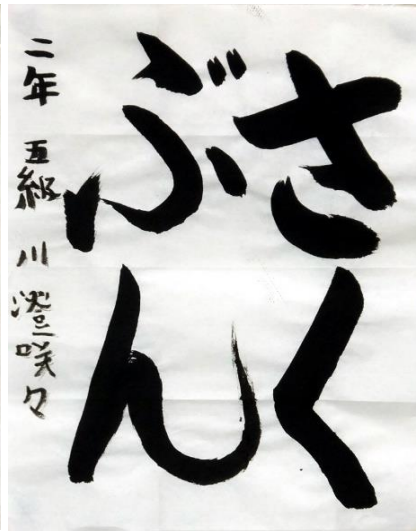 さく
ぶん
二年 五級 川澄咲々